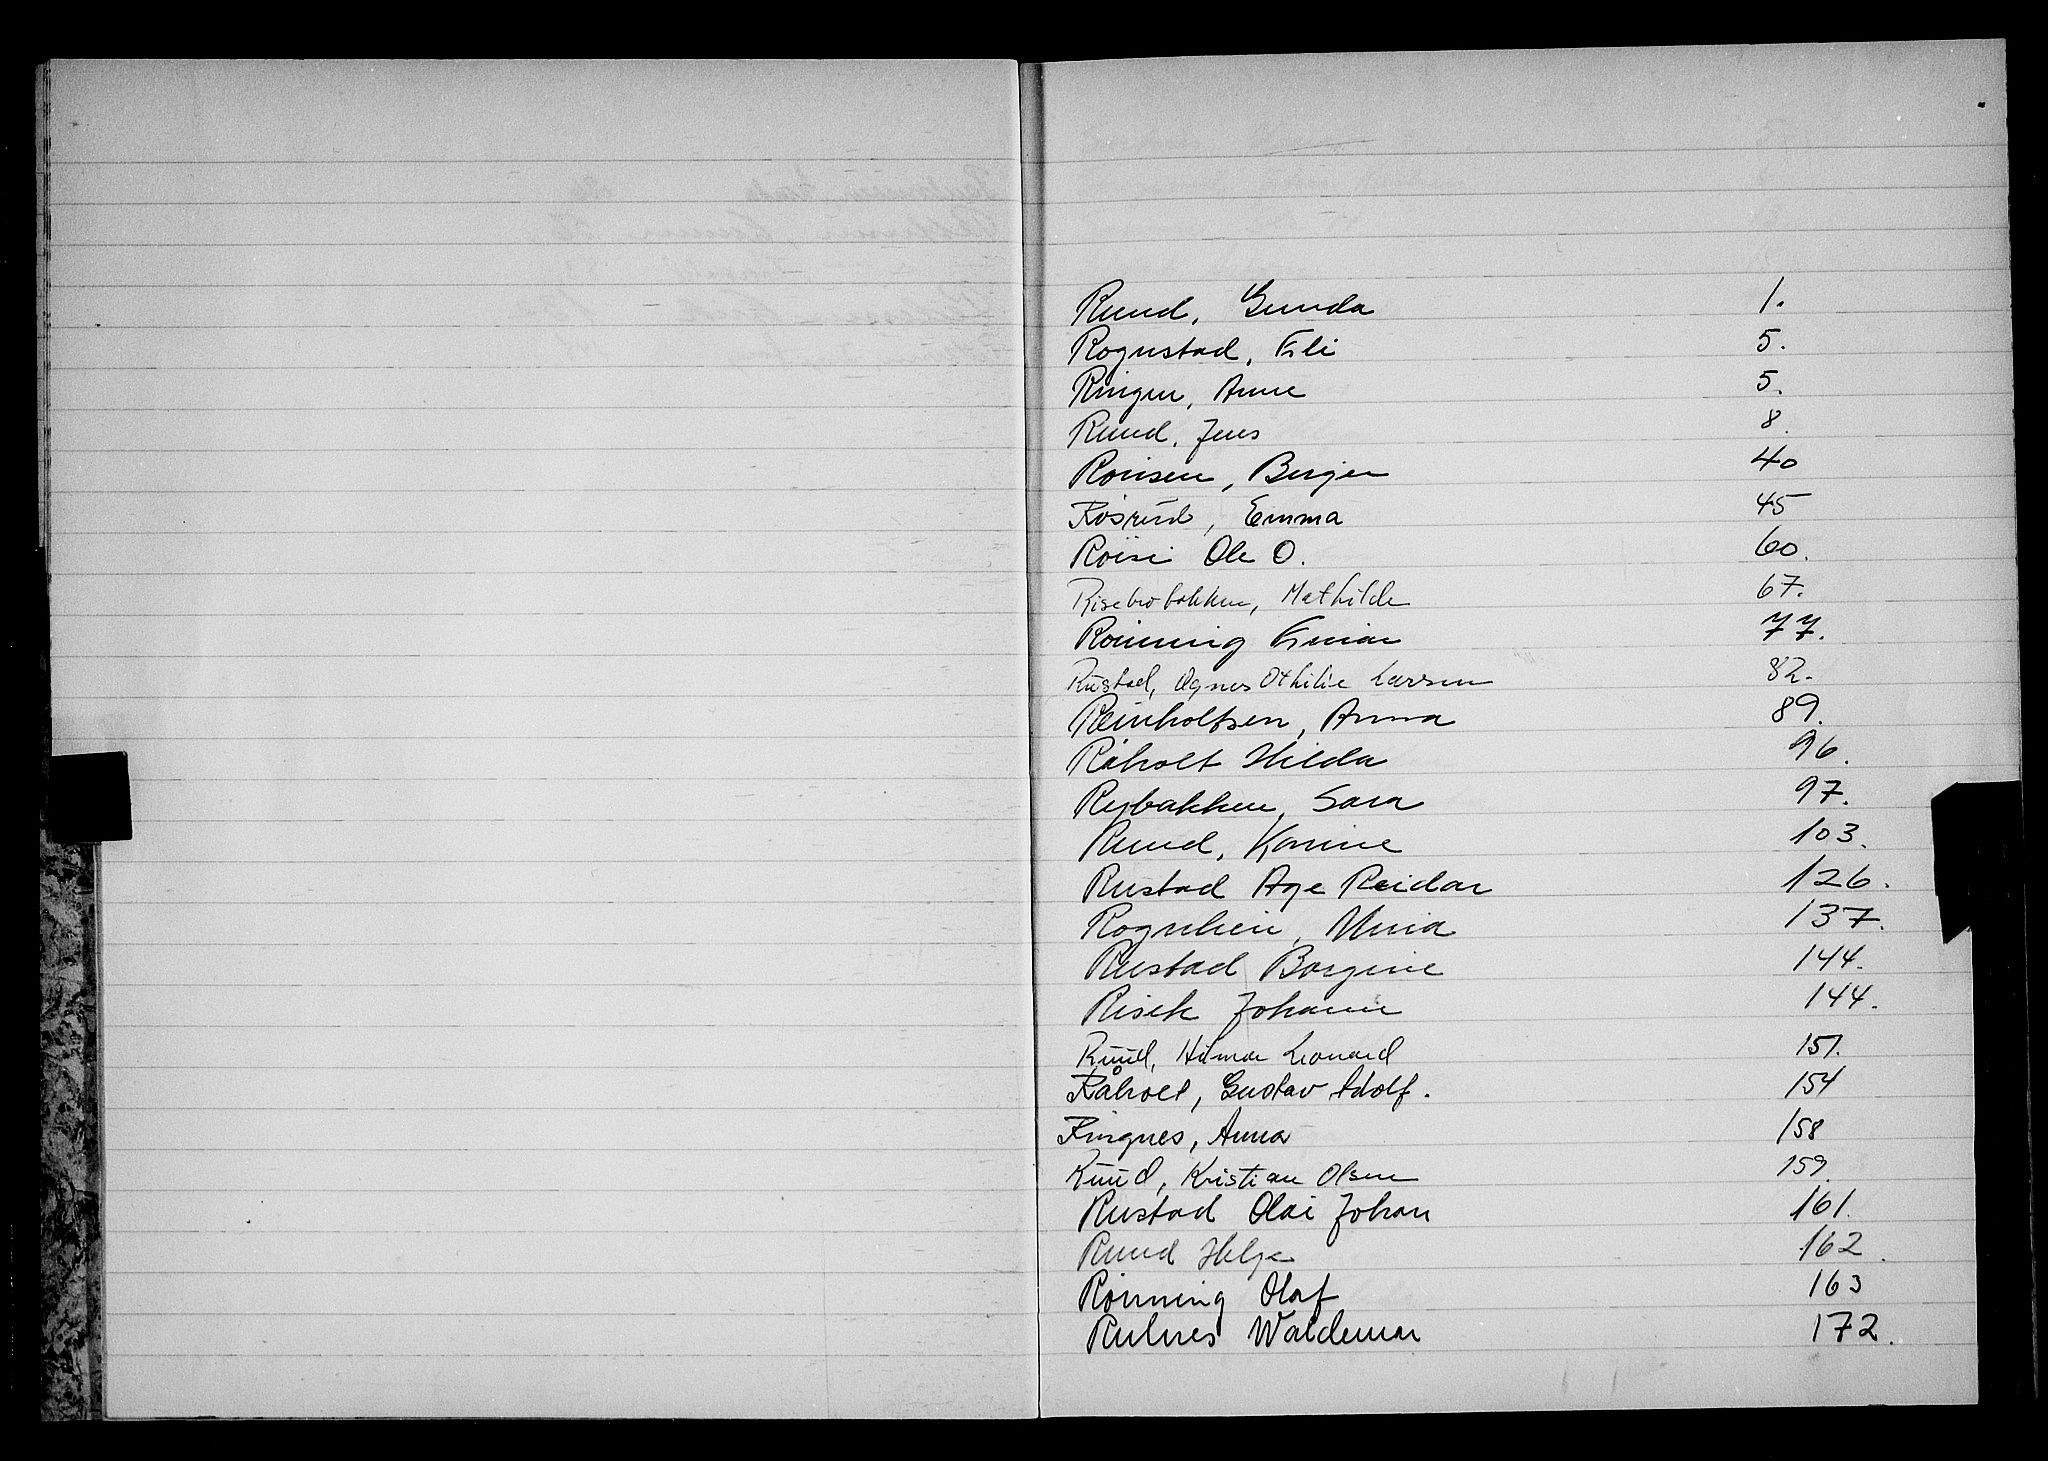 Ruud, Gunda 1.
Rognstad, Eli 5.
Ringen, Anne 5.
Ruud, Jens 8.
Rovisen, Berger 40
Rosrud, Emma 45
Roisi Ole O. 60.
Risebrobakken, Mathilde 67.
Rönning Einar 77.
Rustad, Agnes Othilie Larsen 82.
Reinholtsen, Anna 89.
Råholt Hilda 96.
Rejbakken, Sara 97.
Ruud, Karine 103.
Rustad Age Reidar 126.
Rognlien, Mina 137.
Rustad Borgine 144.
Risek Johanne 144.
Ruud, Hilmar Leonard 151.
Råholt, Gustav Adolf. 154
Ringnes, Anna 158
Ruud, Kristian Olsen 159.
Rustad Olai Johan 161.
Ruud Helge 162.
Rönning Olaf 163
Rulnes Waldemar 172.